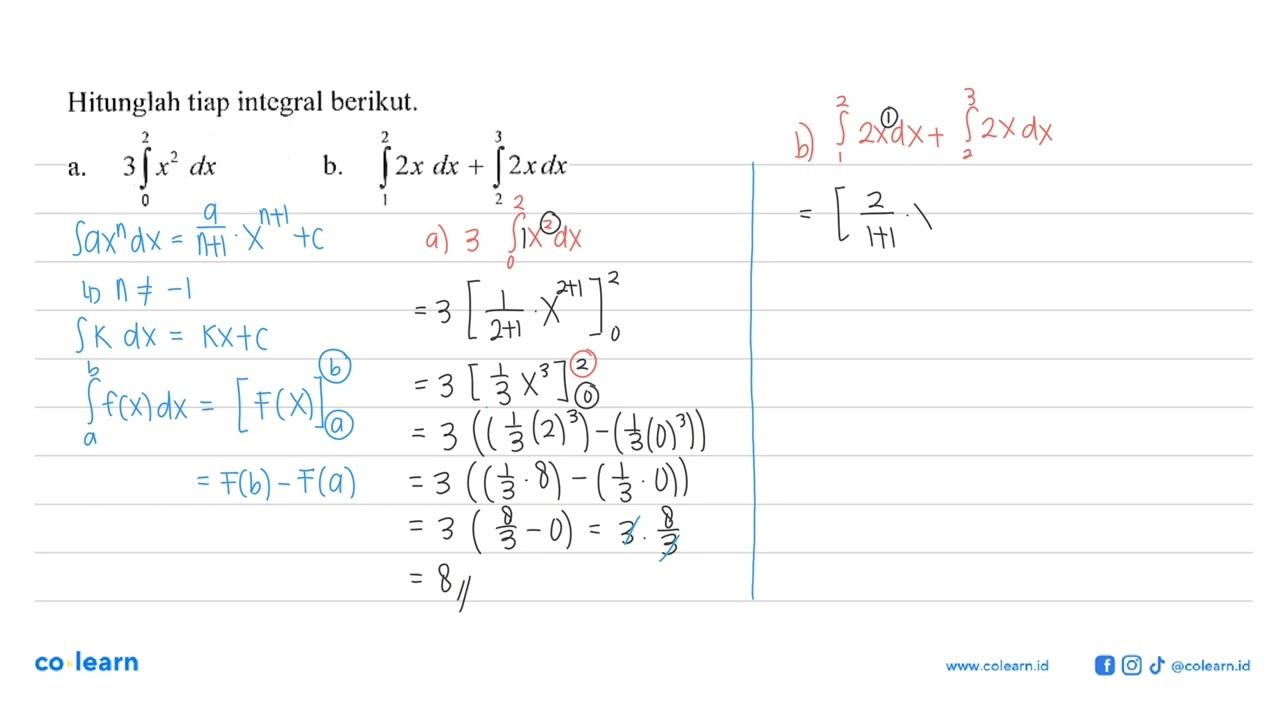 Hitunglah tiap integral berikut.
a. 3∫₀² x² dx b. ∫₁² 2x dx + ∫₂³ 2x dx
∫axⁿdx = a/(n+1) · x^(n+1) + c
↳ n ≠ -1
∫K dx = Kx+c
∫ₐᵇ f(x)dx = [F(x)]ₐᵇ
= F(b) - F(a)
a) 3 ∫₀² 1x² dx
= 3 [1/(2+1) · x^(2+1)]₀²
= 3 [1/3 x³]₀²
= 3 ((1/3 (2)³) - (1/3 (0)³))
= 3 ((1/3 · 8) - (1/3 · 0))
= 3 (8/3 - 0) = 3 · 8/3
= 8//
b) ∫₁² 2x¹dx + ∫₂³ 2x dx
= [2/(1+1) · \
co learn
www.colearn.id @colearn.id